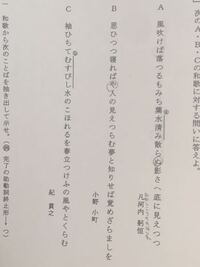 次のA・B・Cの和歌に対する問いに答えよ。
A 風吹けば落つるもみぢ葉水清み散らぬ影さへ底に見えつつ
凡河内躬恒
B 思ひつつ寝ればや人の見えつらむ夢と知りせば覚めざらましを
小野小町
C 袖ひちてむすびし水のこほれるを春立つけふの風やとくらむ
紀貫之
和歌から次のことばを抜き出して示せ。(例 完了の助動詞終止形→つ)